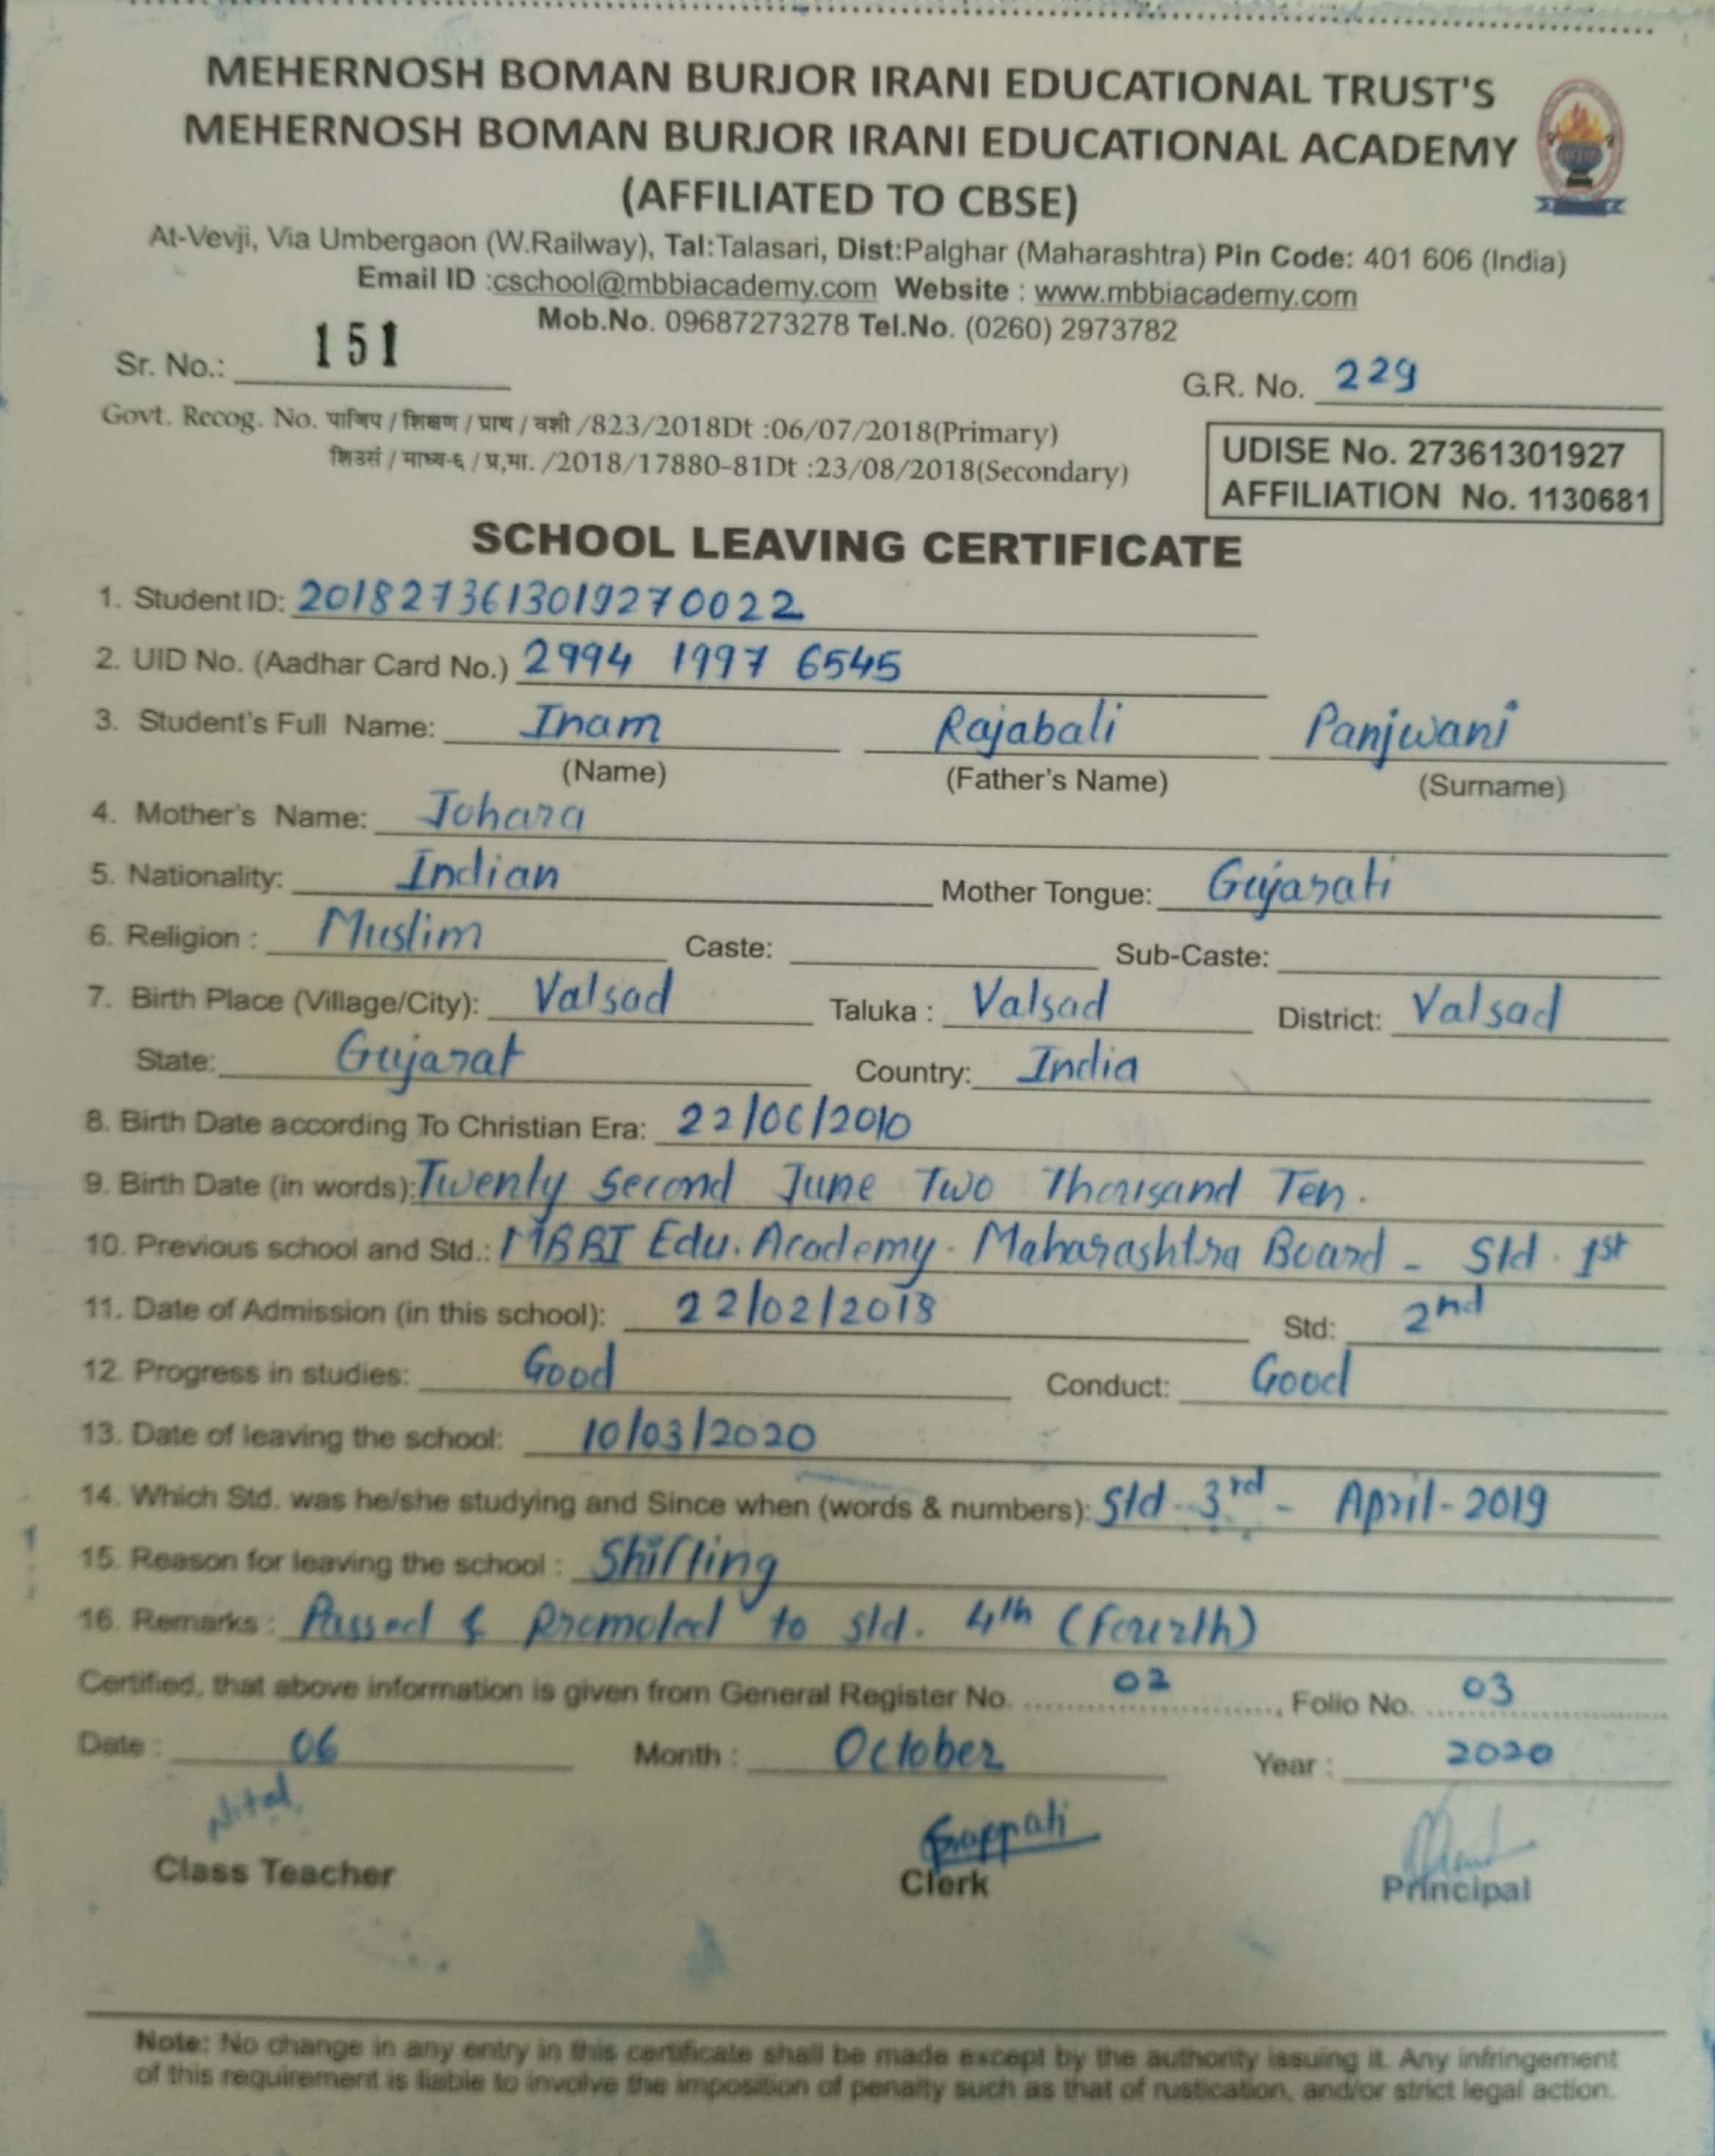 MEHERNOSH BOMAN BURJOR IRANI EDUCATIONAL TRUST'S
MEHERNOSH BOMAN BURJOR IRANI EDUCATIONAL ACADEMY
(AFFILIATED TO CBSE)
At-Vevji, Via Umbergaon (W.Railway), Tal:Talasari, Dist:Palghar (Maharashtra) Pin Code: 401 606 (India)
Email ID :cschool@mbbiacademy.com Website : www.mbbiacademy.com
Mob.No. 09687273278 Tel.No. (0260) 2973782
Sr. No.: 151
G.R. No. 229
Govt. Recog. No. पाजिप / शिक्षण / प्राथ / वशी /823/2018Dt :06/07/2018(Primary)
शिउसं / माध्य-६ / प्र,मा. /2018/17880-81Dt :23/08/2018(Secondary)
UDISE No. 27361301927
AFFILIATION No. 1130681
SCHOOL LEAVING CERTIFICATE
1. Student ID: 2018273613019270022
2. UID No. (Aadhar Card No.) 2994 1997 6545
3. Student's Full Name: Inam Rajabali Panjwani
(Name) (Father's Name) (Surname)
4. Mother's Name: Johara
5. Nationality: Indian Mother Tongue: Gujarati
6. Religion : Muslim Caste: Sub-Caste:
7. Birth Place (Village/City): Valsad Taluka : Valsad District: Valsad
State: Gujarat Country: India
8. Birth Date according To Christian Era: 22/06/2010
9. Birth Date (in words): Twenty Second June Two Thousand Ten.
10. Previous school and Std.: MBBI Edu. Academy - Maharashtra Board - Std. 1st
11. Date of Admission (in this school): 22/02/2018 Std: 2nd
12. Progress in studies: Good Conduct: Good
13. Date of leaving the school: 10/03/2020
14. Which Std. was he/she studying and Since when (words & numbers): Std - 3rd - April - 2019
15. Reason for leaving the school : Shifting
16. Remarks : Passed & Promoted to std. 4th (Fourth)
Certified, that above information is given from General Register No. 02, Folio No. 03
Date : 06 Month : October Year : 2020
Class Teacher Clerk Principal
Note: No change in any entry in this certificate shall be made except by the authority issuing it. Any infringement
of this requirement is liable to involve the imposition of penalty such as that of rustication, and/or strict legal action.